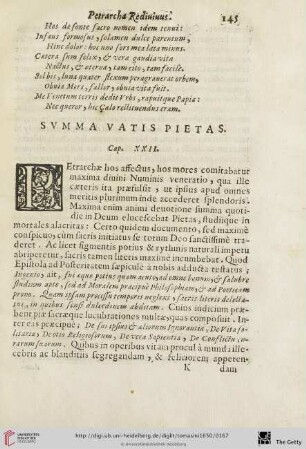 Petrarcha Rediuiuus.
145
Hos de fonte sacro nomen idem tenui:
Infans formosus, solamen dulce parentum,
Hinc dolor: hoc uno sors mea lata minus.
Cætera sum felix, & veræ gaudia vitæ
Nactus, & æternæ, tam cito, tam facile.
Sol bis, luna quater flexum peragrauerat orbem,
Obuia Mors, fallor, obuia vita fuit.
Me Venetum terris dedit Vrbs, rapuitque Papia:
Nec queror, hic Cælo restituendus eram.
SVMMA VATIS PIETAS.
Cap. XXII.
PEtrarchæ hos affectus, hos mores comitabatur
maxima diuini Numinis veneratio, qua ille
cæteris ita præfulsit, ut ipsius apud omnes
meritis plurimum inde accederet splendoris.
Maxima enim animi deuotione summa quoti-
die in Deum elucescebat Pietas, studiique in
mortales alacritas: Certo quidem documento, sed maximè
conspicuo, cùm sacris initiatus se totum Deo sanctissimè tra-
deret. Ac licet figmentis poticis & rythmis naturali impetu
abriperetur, sacris tamen literis maximè incumbebat. Quod
Epistola ad Posteritatem sæpiculè à nobis adducta testatus:
Ingenio, ait, fui æquo potius quàm acuto, ad omne bonum, & salubre
studium apto, sed ad Moralem præcipuè Philosophiam, & ad Poeticam
prono. Quam ipsam processu temporis neglexi, sacris literis delecta-
tus, in quibus sensi dulcedinem abditam. Cuius iudicium præ-
bent piæ sacræque lucubrationes multæ, quas composuit. In-
ter eas præcipuè; De sui ipsius & aliorum Ignorantia, De Vita so-
litaria, De otio Religiosorum, De vera Sapientia, De Conflictu cu-
rarum suarum. Quibus in operibus vitam procul à mundi ille-
cebris ac blanditiis segregandam, & feliciorem apperen-
K
dam
http://digi.ub.uni-heidelberg.de/diglit/tomasini1650/0167
© Universitätsbibliothek Heidelberg
The Getty